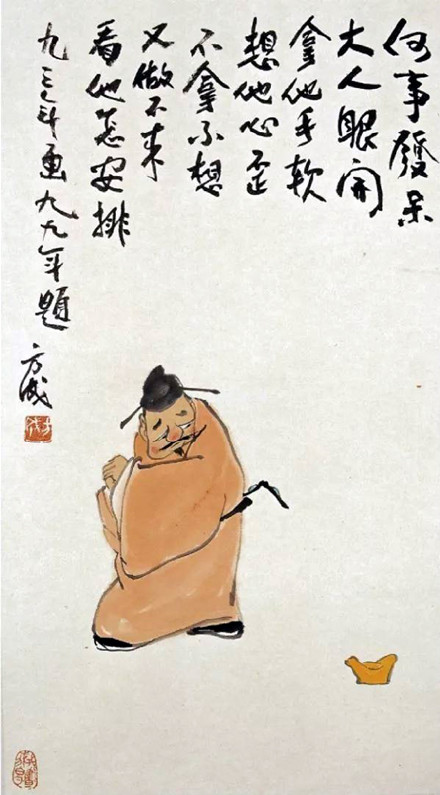 何事發呆
大人眼開
拿他手軟
想他心歪
不拿不想
又做不来
看他怎安排
九三年画九九年題
方成